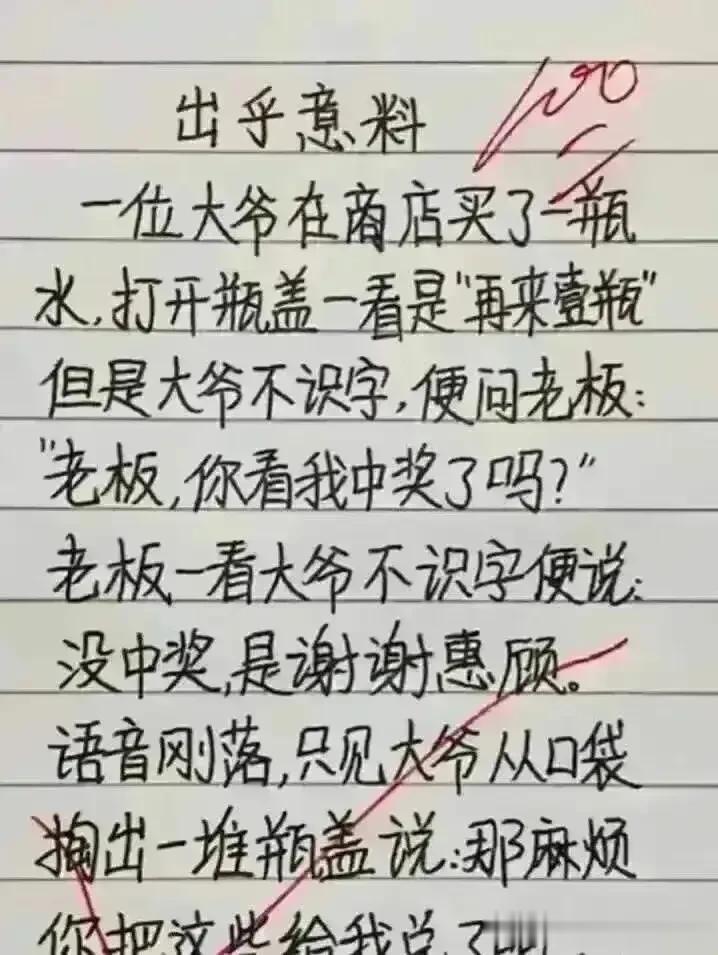 100
出乎意料
一位大爷在商店买了一瓶
水,打开瓶盖一看是"再来壹瓶"
但是大爷不识字,便问老板:
"老板,你看我中奖了吗?"
老板一看大爷不识字便说:
没中奖,是谢谢惠顾。
语音刚落,只见大爷从口袋
掏出一堆瓶盖说:那麻烦
你把这些给我兑了吧